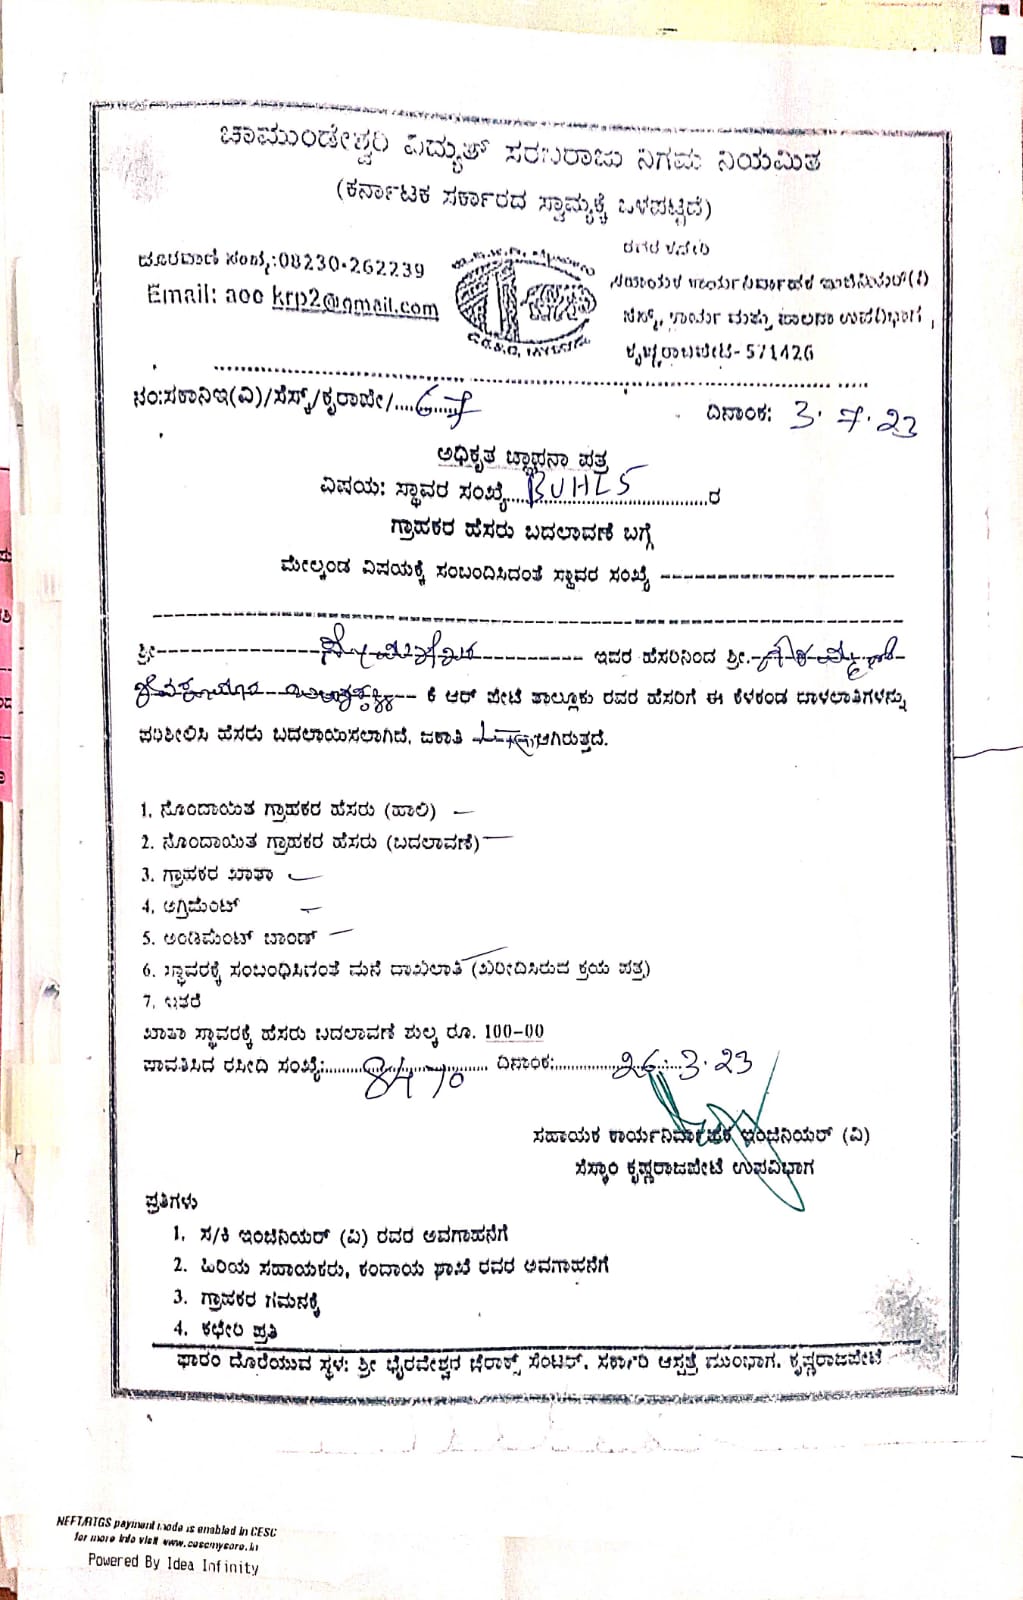 ಚಾಮುಂಡೇಶ್ವರಿ ವಿದ್ಯುತ್ ಸರಬರಾಜು ನಿಗಮ ನಿಯಮಿತ
(ಕರ್ನಾಟಕ ಸರ್ಕಾರದ ಸ್ವಾಮ್ಯಕ್ಕೆ ಒಳಪಟ್ಟಿದೆ)
ದೂರವಾಣಿ ಸಂಖ್ಯೆ:08230-262239
Email: aoo krp2@gmail.com
ಸಹಾಯಕ ಕಾರ್ಯನಿರ್ವಾಹಕ ಇಂಜಿನಿಯರ್(ವಿ)
ಸೆಸ್ಕ್, ಕಾರ್ಯ ಮತ್ತು ಪಾಲನಾ ಉಪವಿಭಾಗ,
ಕೃಷ್ಣರಾಜಪೇಟೆ-571426
ನಂ:ಸಕಾನಿಇ(ವಿ)/ಸೆಸ್ಕ್/ಕೃರಾಪೇ/....67
ದಿನಾಂಕ: 3.7.23
ಅಧಿಕೃತ ಜ್ಞಾಪನಾ ಪತ್ರ
ವಿಷಯ: ಸ್ಥಾವರ ಸಂಖ್ಯೆ....BUHL5....ರ
ಗ್ರಾಹಕರ ಹೆಸರು ಬದಲಾವಣೆ ಬಗ್ಗೆ
ಮೇಲ್ಕಂಡ ವಿಷಯಕ್ಕೆ ಸಂಬಂದಿಸಿದಂತೆ ಸ್ಥಾವರ ಸಂಖ್ಯೆ
ಶ್ರೀ ಇವರ ಹೆಸರಿನಿಂದ ಶ್ರೀ.
ಕೆ ಆರ್ ಪೇಟೆ ತಾಲ್ಲೂಕು ರವರ ಹೆಸರಿಗೆ ಈ ಕೆಳಕಂಡ ದಾಳಲಾತಿಗಳನ್ನು
ಪರಿಶೀಲಿಸಿ ಹೆಸರು ಬದಲಾಯಿಸಲಾಗಿದೆ. ಜಕಾತಿ ಆಗಿರುತ್ತದೆ.
1. ನೊಂದಾಯಿತ ಗ್ರಾಹಕರ ಹೆಸರು (ಹಾಲಿ)
2. ನೊಂದಾಯಿತ ಗ್ರಾಹಕರ ಹೆಸರು (ಬದಲಾವಣೆ)
3. ಗ್ರಾಹಕರ ಖಾತಾ
4. ಅಗ್ರಿಮೆಂಟ್
5. ಅಂಡಿಮೆಂಟ್ ಬಾಂಡ್
6. ಸ್ಥಾವರಕ್ಕೆ ಸಂಬಂಧಿಸಿದಂತೆ ಮನೆ ದಾಖಲಾತಿ (ಖರೀದಿಸಿರುವ ಕ್ರಯ ಪತ್ರ)
7. ಇತರೆ
ಖಾತಾ ಸ್ಥಾವರಕ್ಕೆ ಹೆಸರು ಬದಲಾವಣೆ ಶುಲ್ಕ ರೂ. 100-00
ಪಾವತಿಸಿದ ರಸೀದಿ ಸಂಖ್ಯೆ:....8470.... ದಿನಾಂಕ:....26.3.23
ಸಹಾಯಕ ಕಾರ್ಯನಿರ್ವಾಹಕ ಇಂಜಿನಿಯರ್ (ವಿ)
ಸೆಸ್ಕಾಂ ಕೃಷ್ಣರಾಜಪೇಟೆ ಉಪವಿಭಾಗ
ಪ್ರತಿಗಳು
1. ಸ/ಕಿ ಇಂಜಿನಿಯರ್ (ವಿ) ರವರ ಅವಗಾಹನೆಗೆ
2. ಹಿರಿಯ ಸಹಾಯಕರು, ಕಂದಾಯ ಶಾಖೆ ರವರ ಅವಗಾಹನೆಗೆ
3. ಗ್ರಾಹಕರ ಗಮನಕ್ಕೆ
4. ಕಛೇರಿ ಪ್ರತಿ
ಫಾರಂ ದೊರೆಯುವ ಸ್ಥಳ: ಶ್ರೀ ಭೈರವೇಶ್ವರ ಜೆರಾಕ್ಸ್ ಸೆಂಟರ್, ಸರ್ಕಾರಿ ಆಸ್ಪತ್ರೆ ಮುಂಭಾಗ, ಕೃಷ್ಣರಾಜಪೇಟೆ
NEFT/RTGS payment mode is enabled in CESC
for more info visit www.cescmysore.in
Powered By Idea Infinity